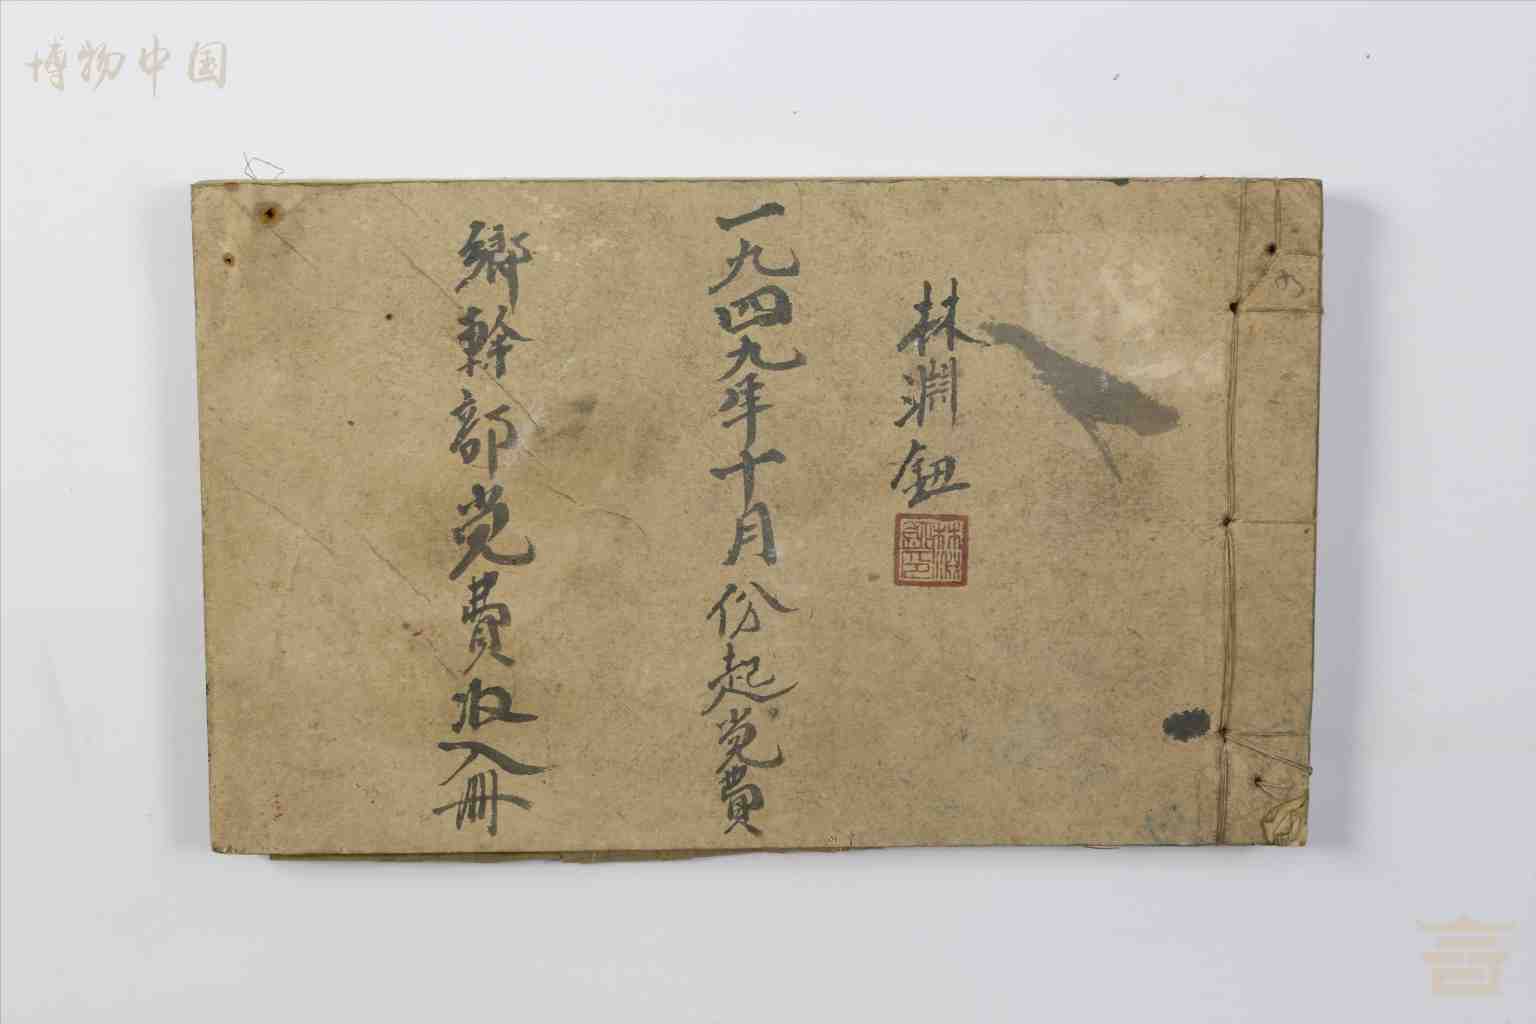 博物中国
林渊鈕
一九四九年十月份起党費
鄉幹部党費收入冊